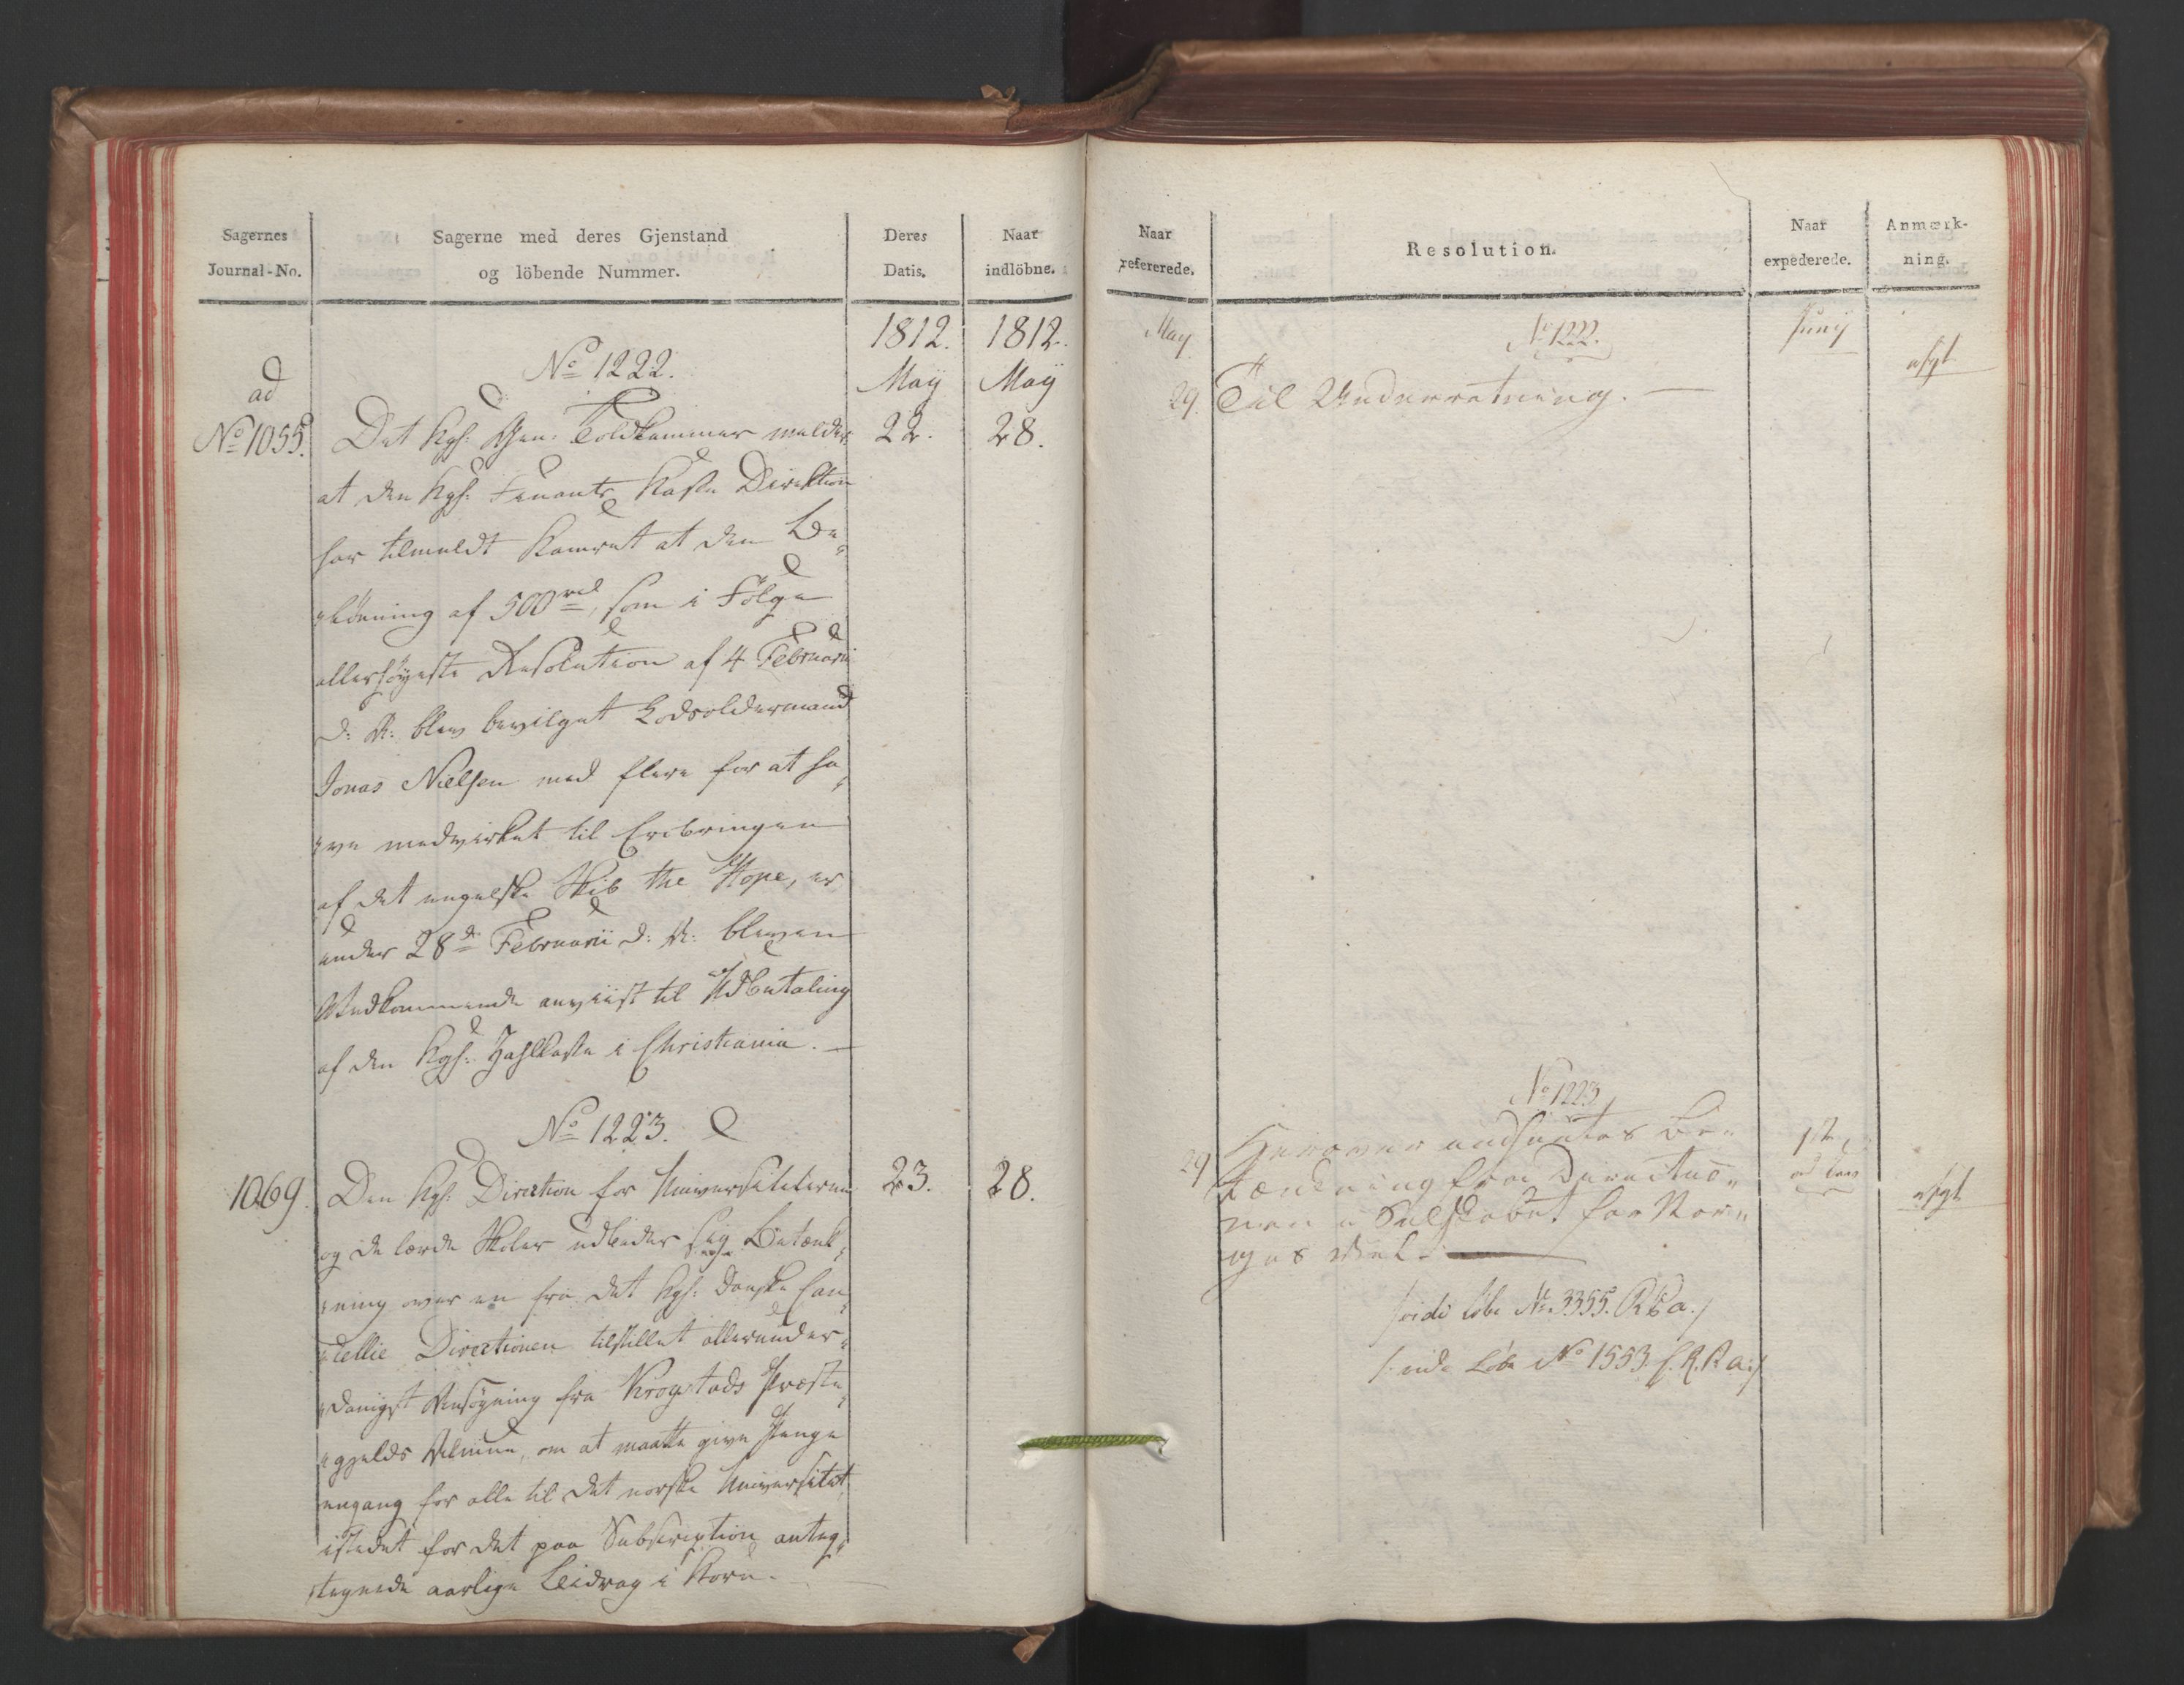 Sagernes
Journal-No.
Sagerne med deres Gjenstand
og löbende Nummer.
Deres
Datis.
Naar
indlöbne.
1812.
1812.
No 1222.
May
May
ad
No 1055.
Det kgl: Gen: Toldkammer melder,
22.
28.
at den kgl: Finants Kasse Direktion
har tilmeldt Kamret at den Be„
„lönning af 500 rd, som i Fölge
allerhöyeste Resolution af 4 Februarii
d: A: blev bevilget Lodsoldermand
Jonas Nielsen med flere for at ha„
„ve medvirket til Erobringen
af det engelske Skib the Hope, er
under 28de Februarii d: A: bleven
Vedkommende anviist til Udbetaling
af den kgl: Zahlkasse i Christiania. —
No 1223.
1069.
Den kgl: Direction for Universitetet
23.
28.
og de lærde Skoler udbeder sig Betænk„
„ning over en fra det kgl: danske Can„
„cellie Directionen tilstillet allerunder„
„danigst Ansögning fra Krogstads Præste„
„gjelds Almue, om at maatte give Penge
engang for alle til det norske Universitet
istedet for det paa Subscription anteg„
tegnede aarlige Bidrag i Korn. —
Naar
refererede.
Resolution.
Naar
expederede.
Anmærk-
ning.
May
No 1222.
Junij
afgl
29.
Til Underretning. —
No 1223
29
Herover indhentes Be„
tænkning fra Directio„
nen i Selskabet for Nor„
ges Vel. —
1ste
afgl
/vide löbe No 3355. R R a./
/: vide Löbe No 1553. f. R. R a:/